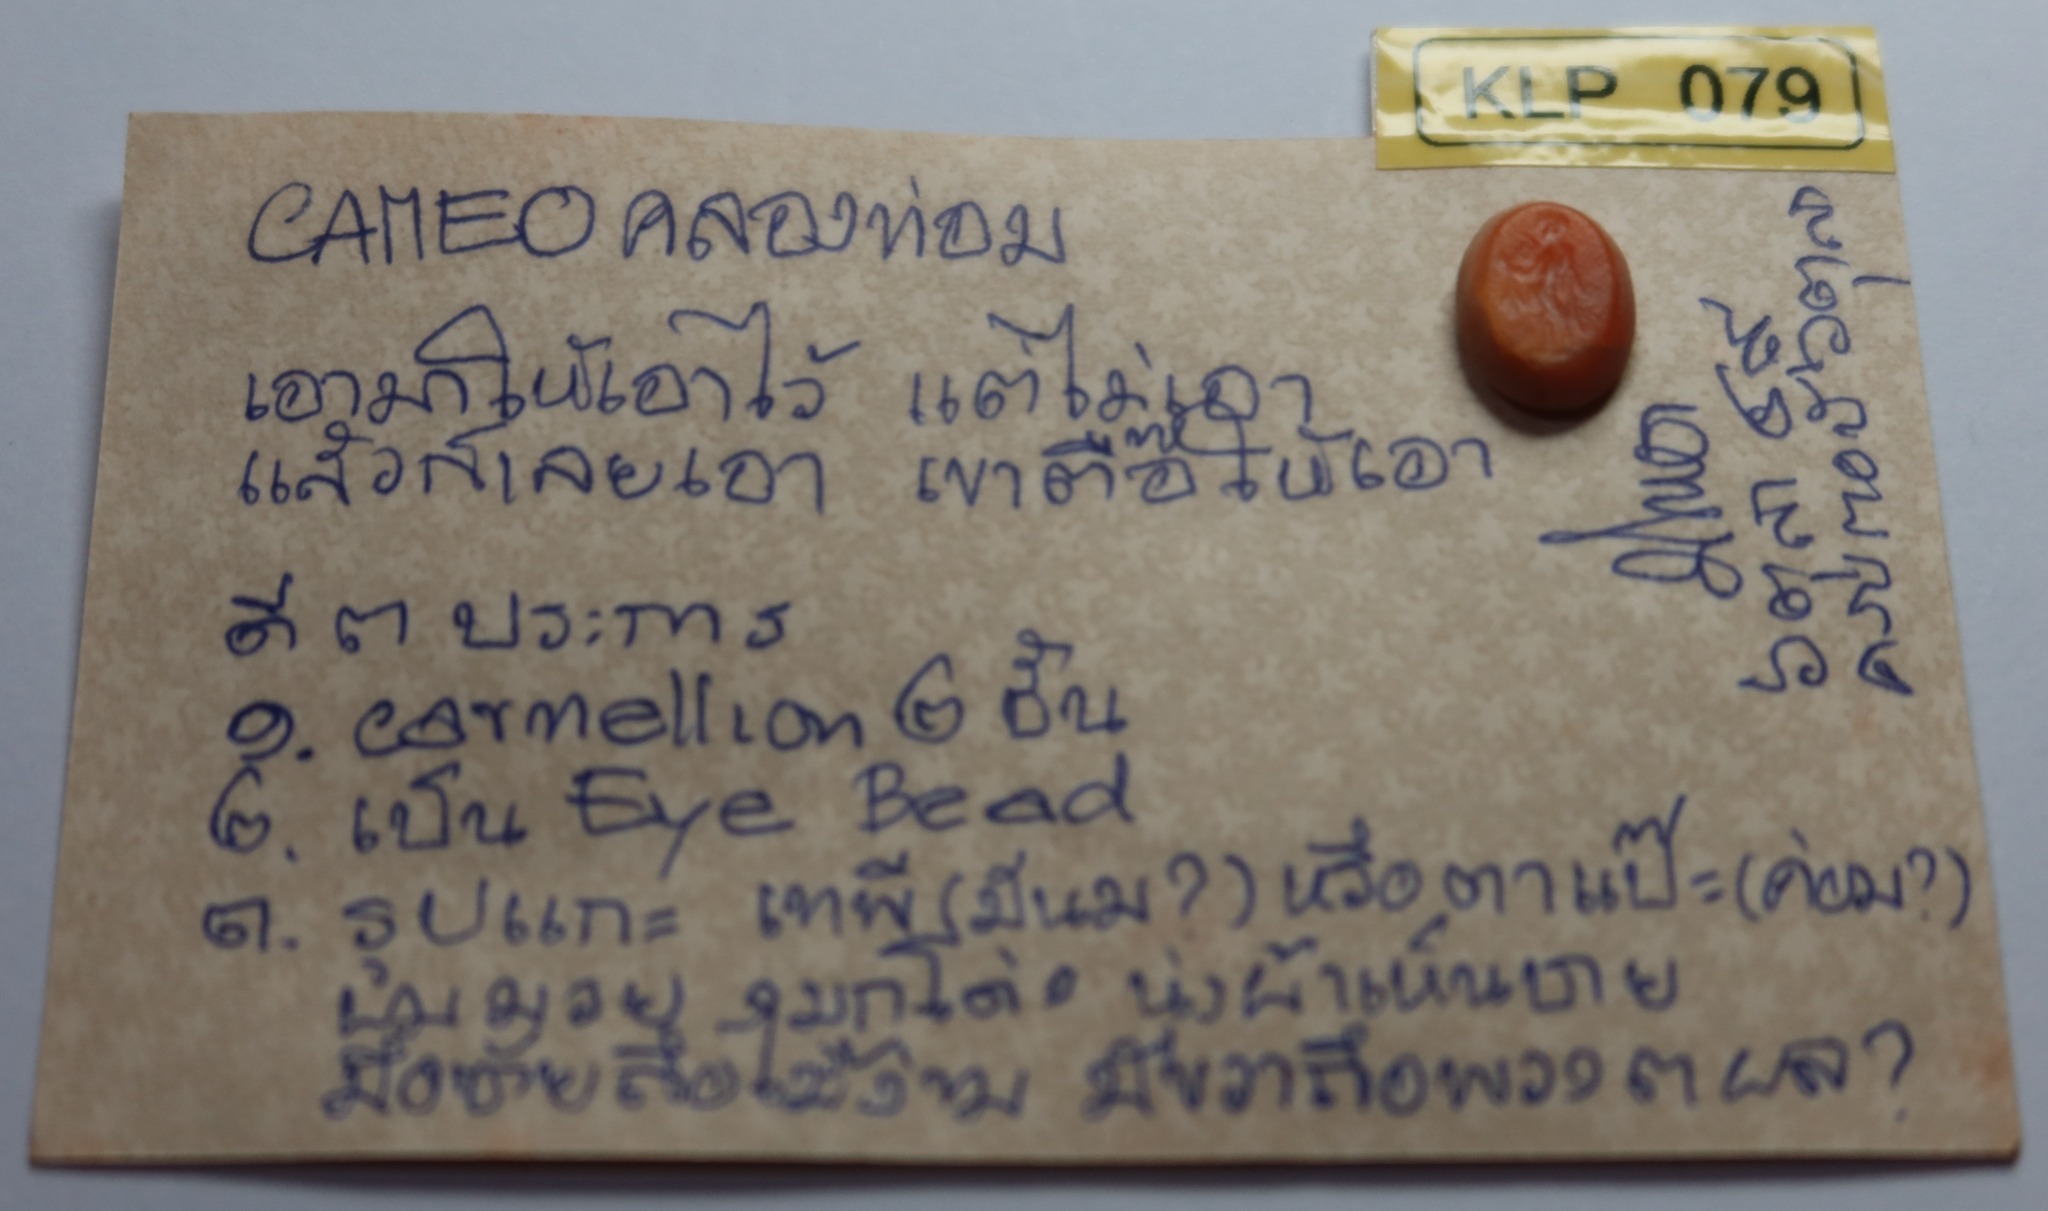 KLP 079
CAMEO คลองท่อม
เอามาให้เอาไว้ แต่ไม่เอา
แล้วก็เลยเอา เขาตื๊อให้เอา
ดี ๓ ประการ
๑. carmellion ๒ ชั้น
๒. เป็น Eye Bead
๓. รูปแกะ เทพี (มีนม?) หรือตาแป๊ะ (ค่อม?)
มุ่นมวย จมูกโด่ง นุ่งผ้าเห็นชาย
มือซ้ายถือไม้ง่าม มือขวาถือพวง ๓ ผล?